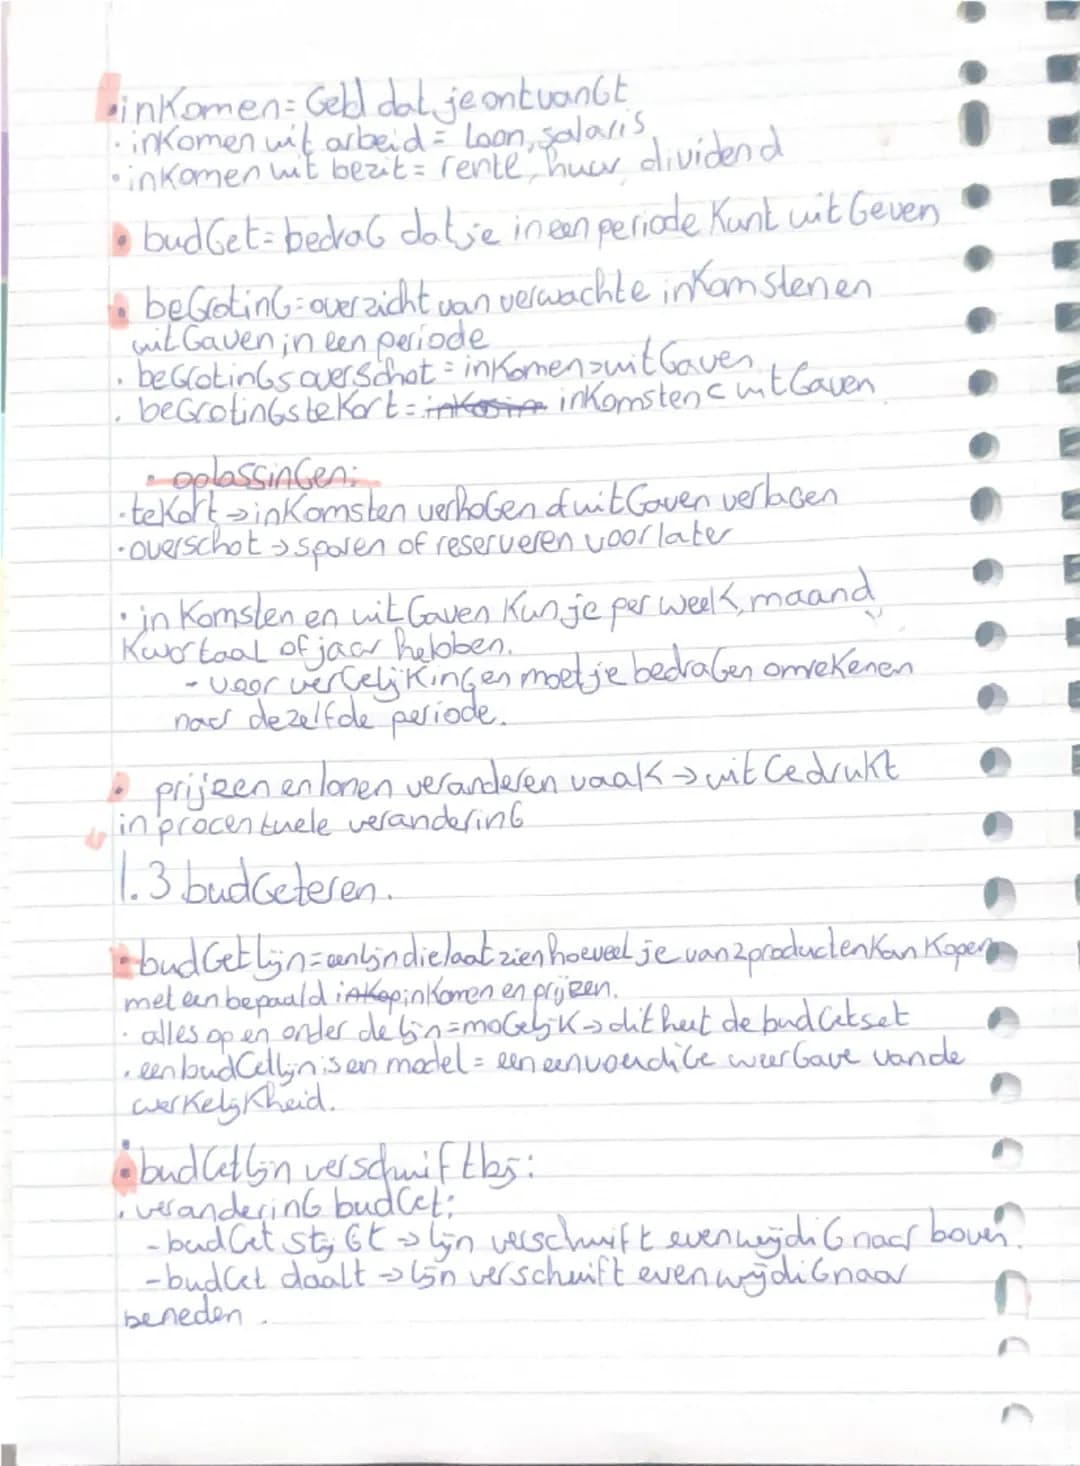 • inkomen = Geld dat je ontvangt
• inkomen uit arbeid = Loon, salaris
• inkomen uit bezit = rente, huur, dividend
• budget = bedrag dat je in een periode kunt uitgeven
• begroting = overzicht van verwachte inkomsten en
uitgaven in een periode
• begrotingsoverschot = inkomen > uitgaven
• begrotingstekort = inkomsten < uitgaven
• oplassingen:
• tekort → inkomsten verhogen of uitgaven verlagen
• overschot → sparen of reserveren voor later
• inkomsten en uitgaven kun je per week, maand
kwartaal of jaar hebben.
- voor vergelijkingen moet je bedragen omrekenen
naar dezelfde periode.
• prijzen en lonen veranderen vaak → uitgedrukt
in procentuele verandering
1.3 budgeteren.
• budgetlijn = een lijn die laat zien hoeveel je van 2 producten kan kopen
met een bepaald inkomen en prijzen.
• alles op en onder de lijn = mogelijk → dit heet de budgetset
• een budgetlijn is een model = een eenvoudige weergave van de
werkelijkheid.
• budgetlijn verschuift bij:
• verandering budget:
- budget stijgt → lijn verschuift evenwijdig naar boven.
- budget daalt → lijn verschuift evenwijdig naar
beneden.